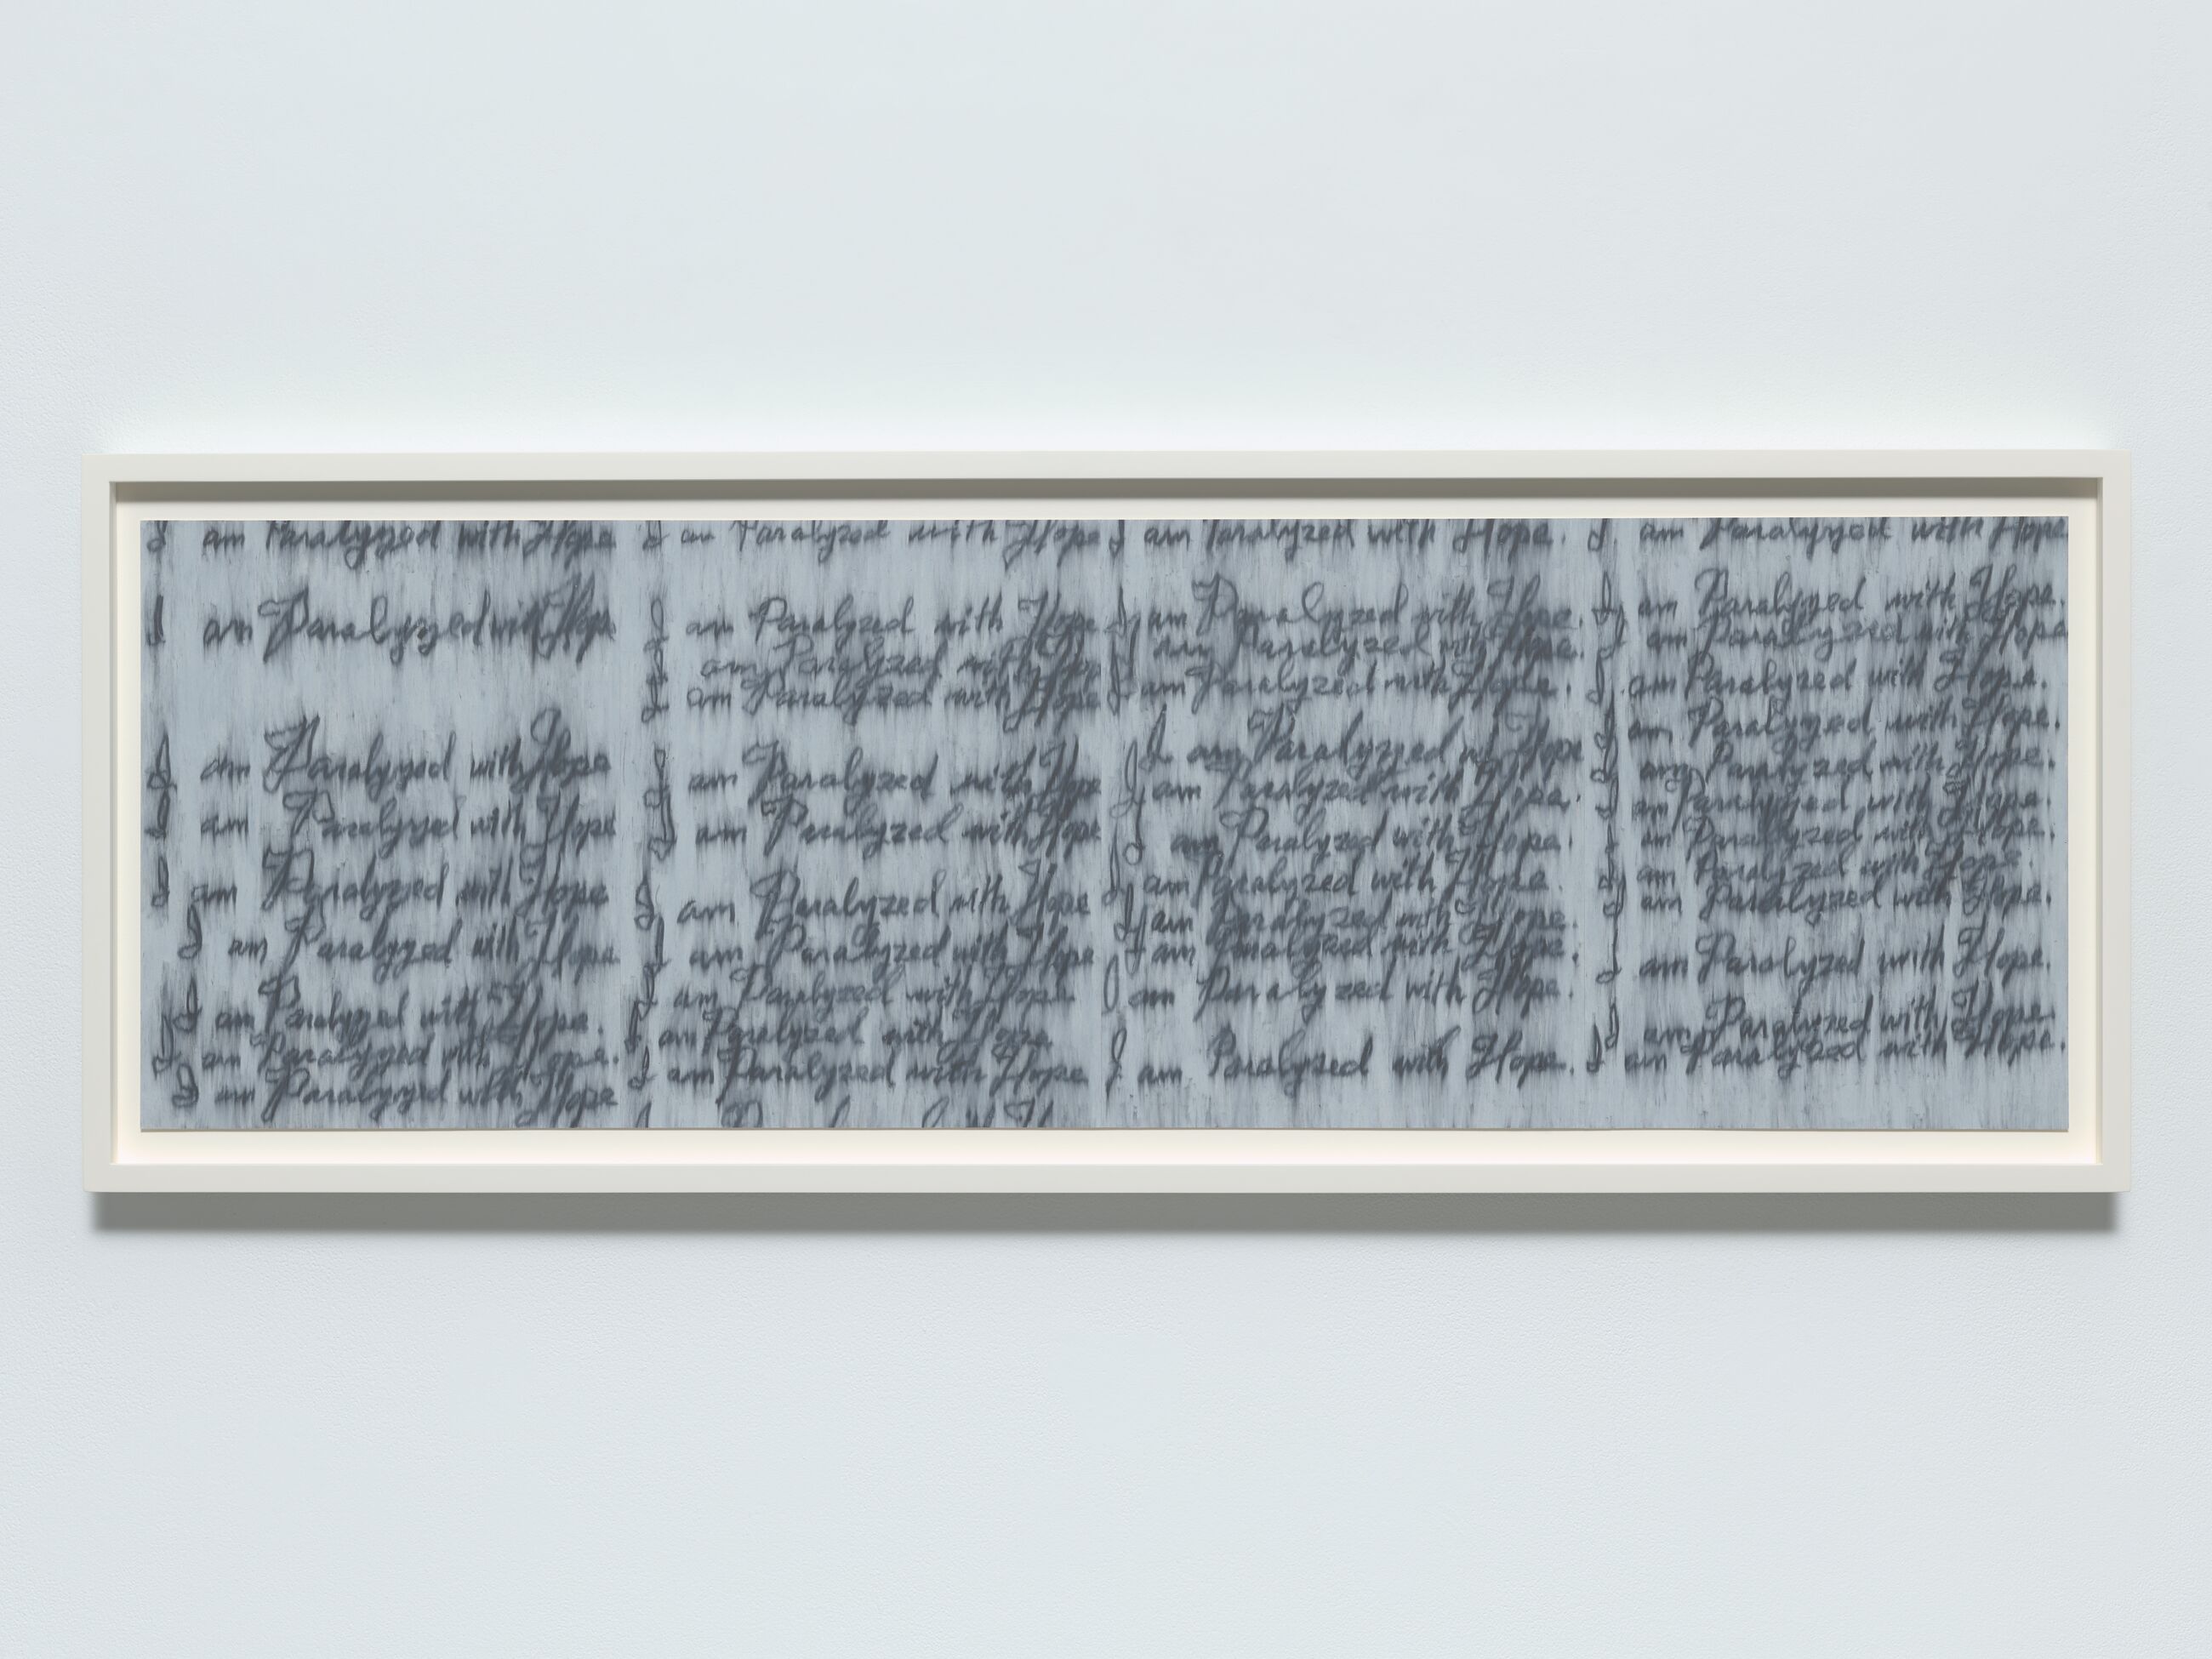 I am Paralyzed with Hope
I am Paralyzed with Hope
I am Paralyzed with Hope
I am Paralyzed with Hope
I am Paralyzed with Hope
I am Paralyzed with Hope
I am Paralyzed with Hope.
I am Paralyzed with Hope.
I am Paralyzed with Hope
I am Paralyzed with Hope
I am Paralyzed with Hope
I am Paralyzed with Hop
I am Paralyzed with Hope
I am Paralyzed with Hope
I am Paralyzed with Hope
I am Paralyzed with Hope
I am Paralyzed with Hope
I am Paralyzed with Hope
I am Paralyzed with Hope
I am Paralyzed with Hope
I am Paralyzed with Hope.
I am Paralyzed with Hope.
I am Paralyzed with Hope.
I am Paralyzed with Hope.
I am Paralyzed with Hope
I am Paralyzed with Hope.
I am Paralyzed with Hope.
I am Paralyzed with Hope.
I am Paralyzed with Hope.
I am Paralyzed with Hope.
I am Paralyzed with Hope.
I am Paralyzed with Hope.
I am Paralyzed with Hope
I am Paralyzed with Hope.
I am Paralyzed with Hope
I am Paralyzed with Hope.
I am Paralyzed with Hope.
I am Paralyzed with Hope.
I am Paralyzed with Hope.
I am Paralyzed with Hope.
I am Paralyzed with Hope.
I am Paralyzed with Hope.
I am Paralyzed with Hope.
I am Paralyzed with Hope.
I am Paralyzed with Hope.